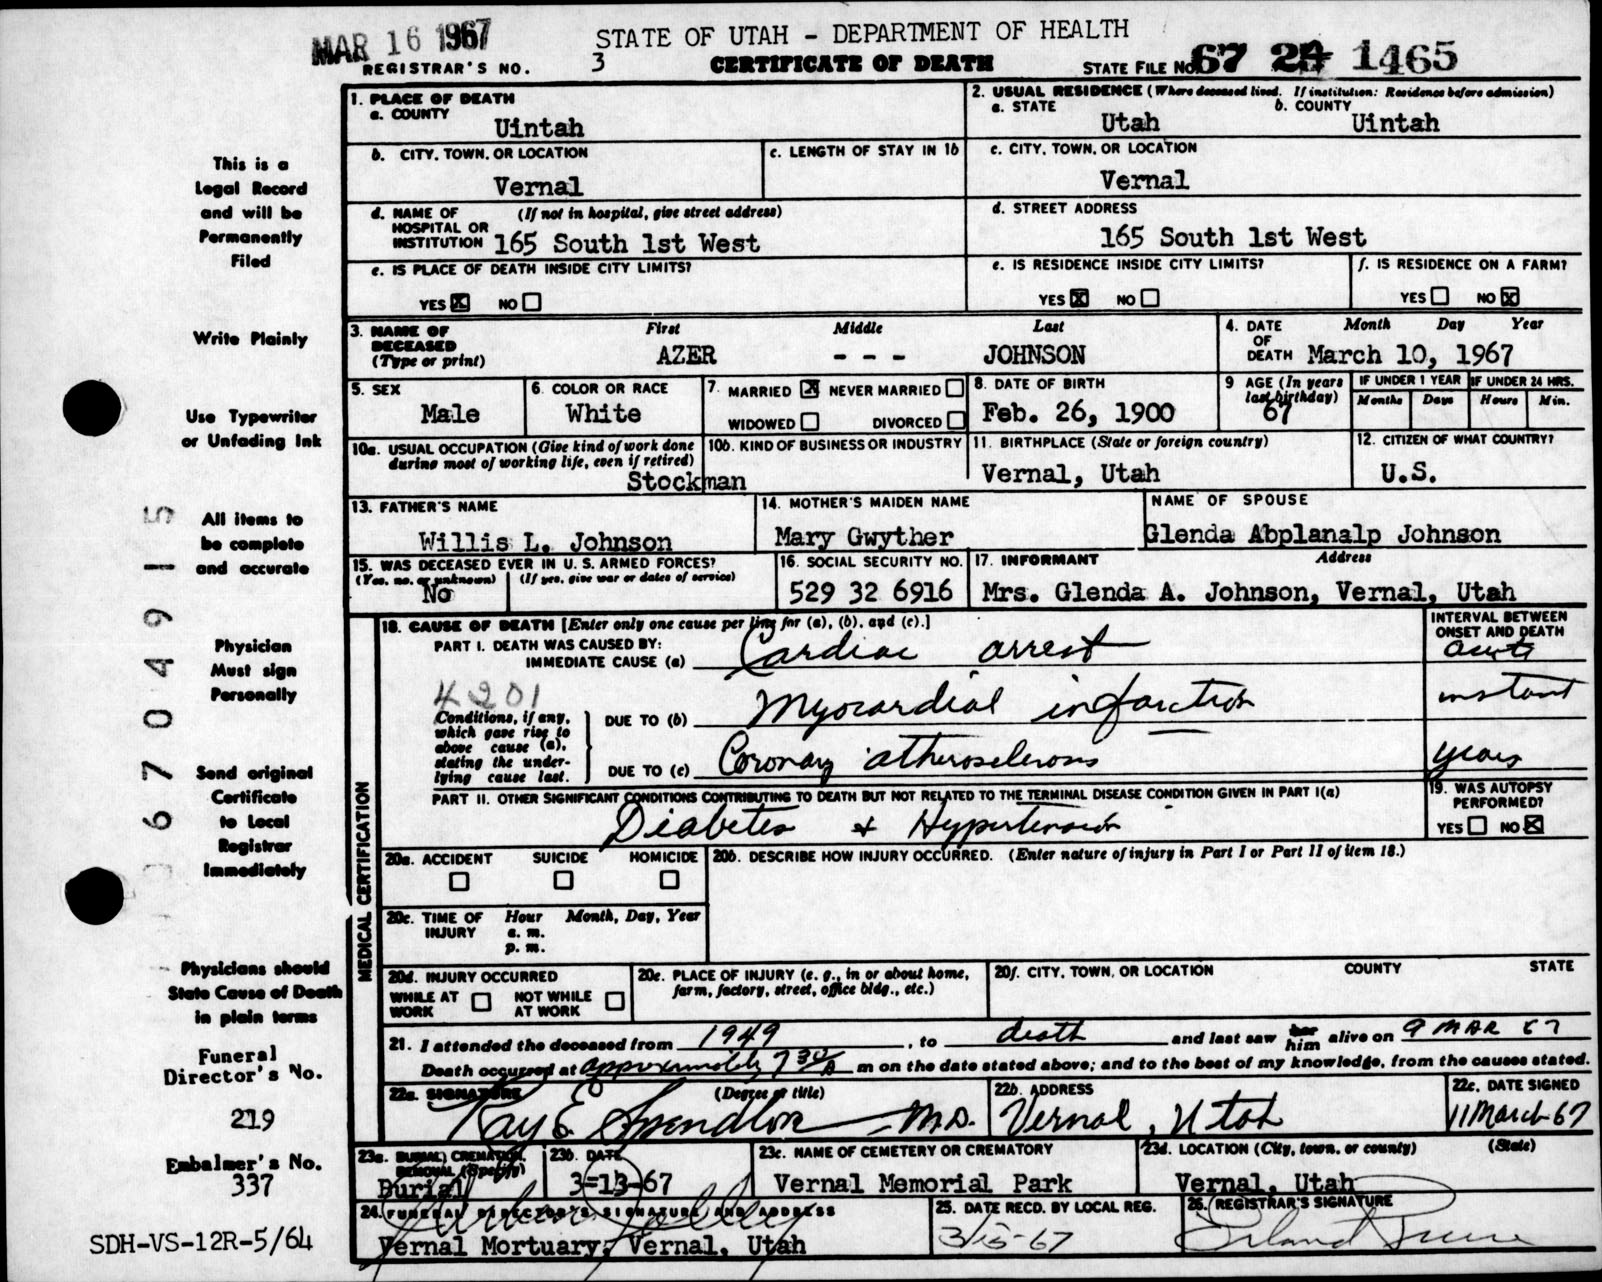 MAR 16 1967
STATE OF UTAH - DEPARTMENT OF HEALTH
REGISTRAR'S NO. 3 CERTIFICATE OF DEATH STATE FILE NO. 67 24 1465
1. PLACE OF DEATH
a. COUNTY
Uintah
2. USUAL RESIDENCE (Where deceased lived. If institution: Residence before admission)
a. STATE b. COUNTY
Utah Uintah
b. CITY, TOWN, OR LOCATION
Vernal
c. LENGTH OF STAY IN 1b
c. CITY, TOWN, OR LOCATION
Vernal
d. NAME OF HOSPITAL OR INSTITUTION (If not in hospital, give street address)
165 South 1st West
d. STREET ADDRESS
165 South 1st West
e. IS PLACE OF DEATH INSIDE CITY LIMITS?
YES X NO
e. IS RESIDENCE INSIDE CITY LIMITS?
YES X NO
f. IS RESIDENCE ON A FARM?
YES NO X
3. NAME OF DECEASED (Type or print)
First Middle Last
AZER - - - JOHNSON
4. DATE OF DEATH Month Day Year
March 10, 1967
5. SEX
Male
6. COLOR OR RACE
White
7. MARRIED X NEVER MARRIED
WIDOWED DIVORCED
8. DATE OF BIRTH
Feb. 26, 1900
9 AGE (In years last birthday)
67
IF UNDER 1 YEAR IF UNDER 24 HRS.
Months Days Hours Min.
10a. USUAL OCCUPATION (Give kind of work done during most of working life, even if retired)
Stockman
10b. KIND OF BUSINESS OR INDUSTRY
11. BIRTHPLACE (State or foreign country)
Vernal, Utah
12. CITIZEN OF WHAT COUNTRY?
U.S.
13. FATHER'S NAME
Willis L. Johnson
14. MOTHER'S MAIDEN NAME
Mary Gwyther
NAME OF SPOUSE
Glenda Abplanalp Johnson
15. WAS DECEASED EVER IN U. S. ARMED FORCES?
(Yes, no, or unknown) (If yes, give war or dates of service)
No
16. SOCIAL SECURITY NO.
529 32 6916
17. INFORMANT Address
Mrs. Glenda A. Johnson, Vernal, Utah
MEDICAL CERTIFICATION
18. CAUSE OF DEATH [Enter only one cause per line for (a), (b), and (c).]
INTERVAL BETWEEN ONSET AND DEATH
PART I. DEATH WAS CAUSED BY:
IMMEDIATE CAUSE (a) Cardiac arrest acute
4201
Conditions, if any, which gave rise to above cause (a), stating the underlying cause last.
DUE TO (b) Myocardial infarction instant
DUE TO (c) Coronary atherosclerosis years
PART II. OTHER SIGNIFICANT CONDITIONS CONTRIBUTING TO DEATH BUT NOT RELATED TO THE TERMINAL DISEASE CONDITION GIVEN IN PART I(a)
Diabetes + Hypertension
19. WAS AUTOPSY PERFORMED?
YES NO X
20a. ACCIDENT SUICIDE HOMICIDE
20b. DESCRIBE HOW INJURY OCCURRED. (Enter nature of injury in Part I or Part II of item 18.)
20c. TIME OF INJURY Hour Month, Day, Year
a. m.
p. m.
20d. INJURY OCCURRED
WHILE AT WORK NOT WHILE AT WORK
20e. PLACE OF INJURY (e. g., in or about home, farm, factory, street, office bldg., etc.)
20f. CITY, TOWN, OR LOCATION COUNTY STATE
21. I attended the deceased from 1949, to death and last saw her him alive on 9 MAR 67
Death occurred at approximately 7 30/A m on the date stated above; and to the best of my knowledge, from the causes stated.
22a. SIGNATURE (Degree or title)
Ray E Spendlove M.D.
22b. ADDRESS
Vernal, Utah
22c. DATE SIGNED
11 March 67
23a. BURIAL, CREMATION, REMOVAL (Specify)
Burial
23b. DATE
3-13-67
23c. NAME OF CEMETERY OR CREMATORY
Vernal Memorial Park
23d. LOCATION (City, town, or county) (State)
Vernal, Utah
24. FUNERAL DIRECTOR'S SIGNATURE AND ADDRESS
Vernal Mortuary, Vernal, Utah
25. DATE RECD. BY LOCAL REG.
3/15-67
26. REGISTRAR'S SIGNATURE
This is a
Legal Record
and will be
Permanently
Filed
Write Plainly
Use Typewriter
or Unfading Ink
All items to
be complete
and accurate
Physician
Must sign
Personally
Send original
Certificate
to Local
Registrar
Immediately
Physicians should
State Cause of Death
in plain terms
Funeral
Director's No.
219
Embalmer's No.
337
SDH-VS-12R-5/64
0670491 5